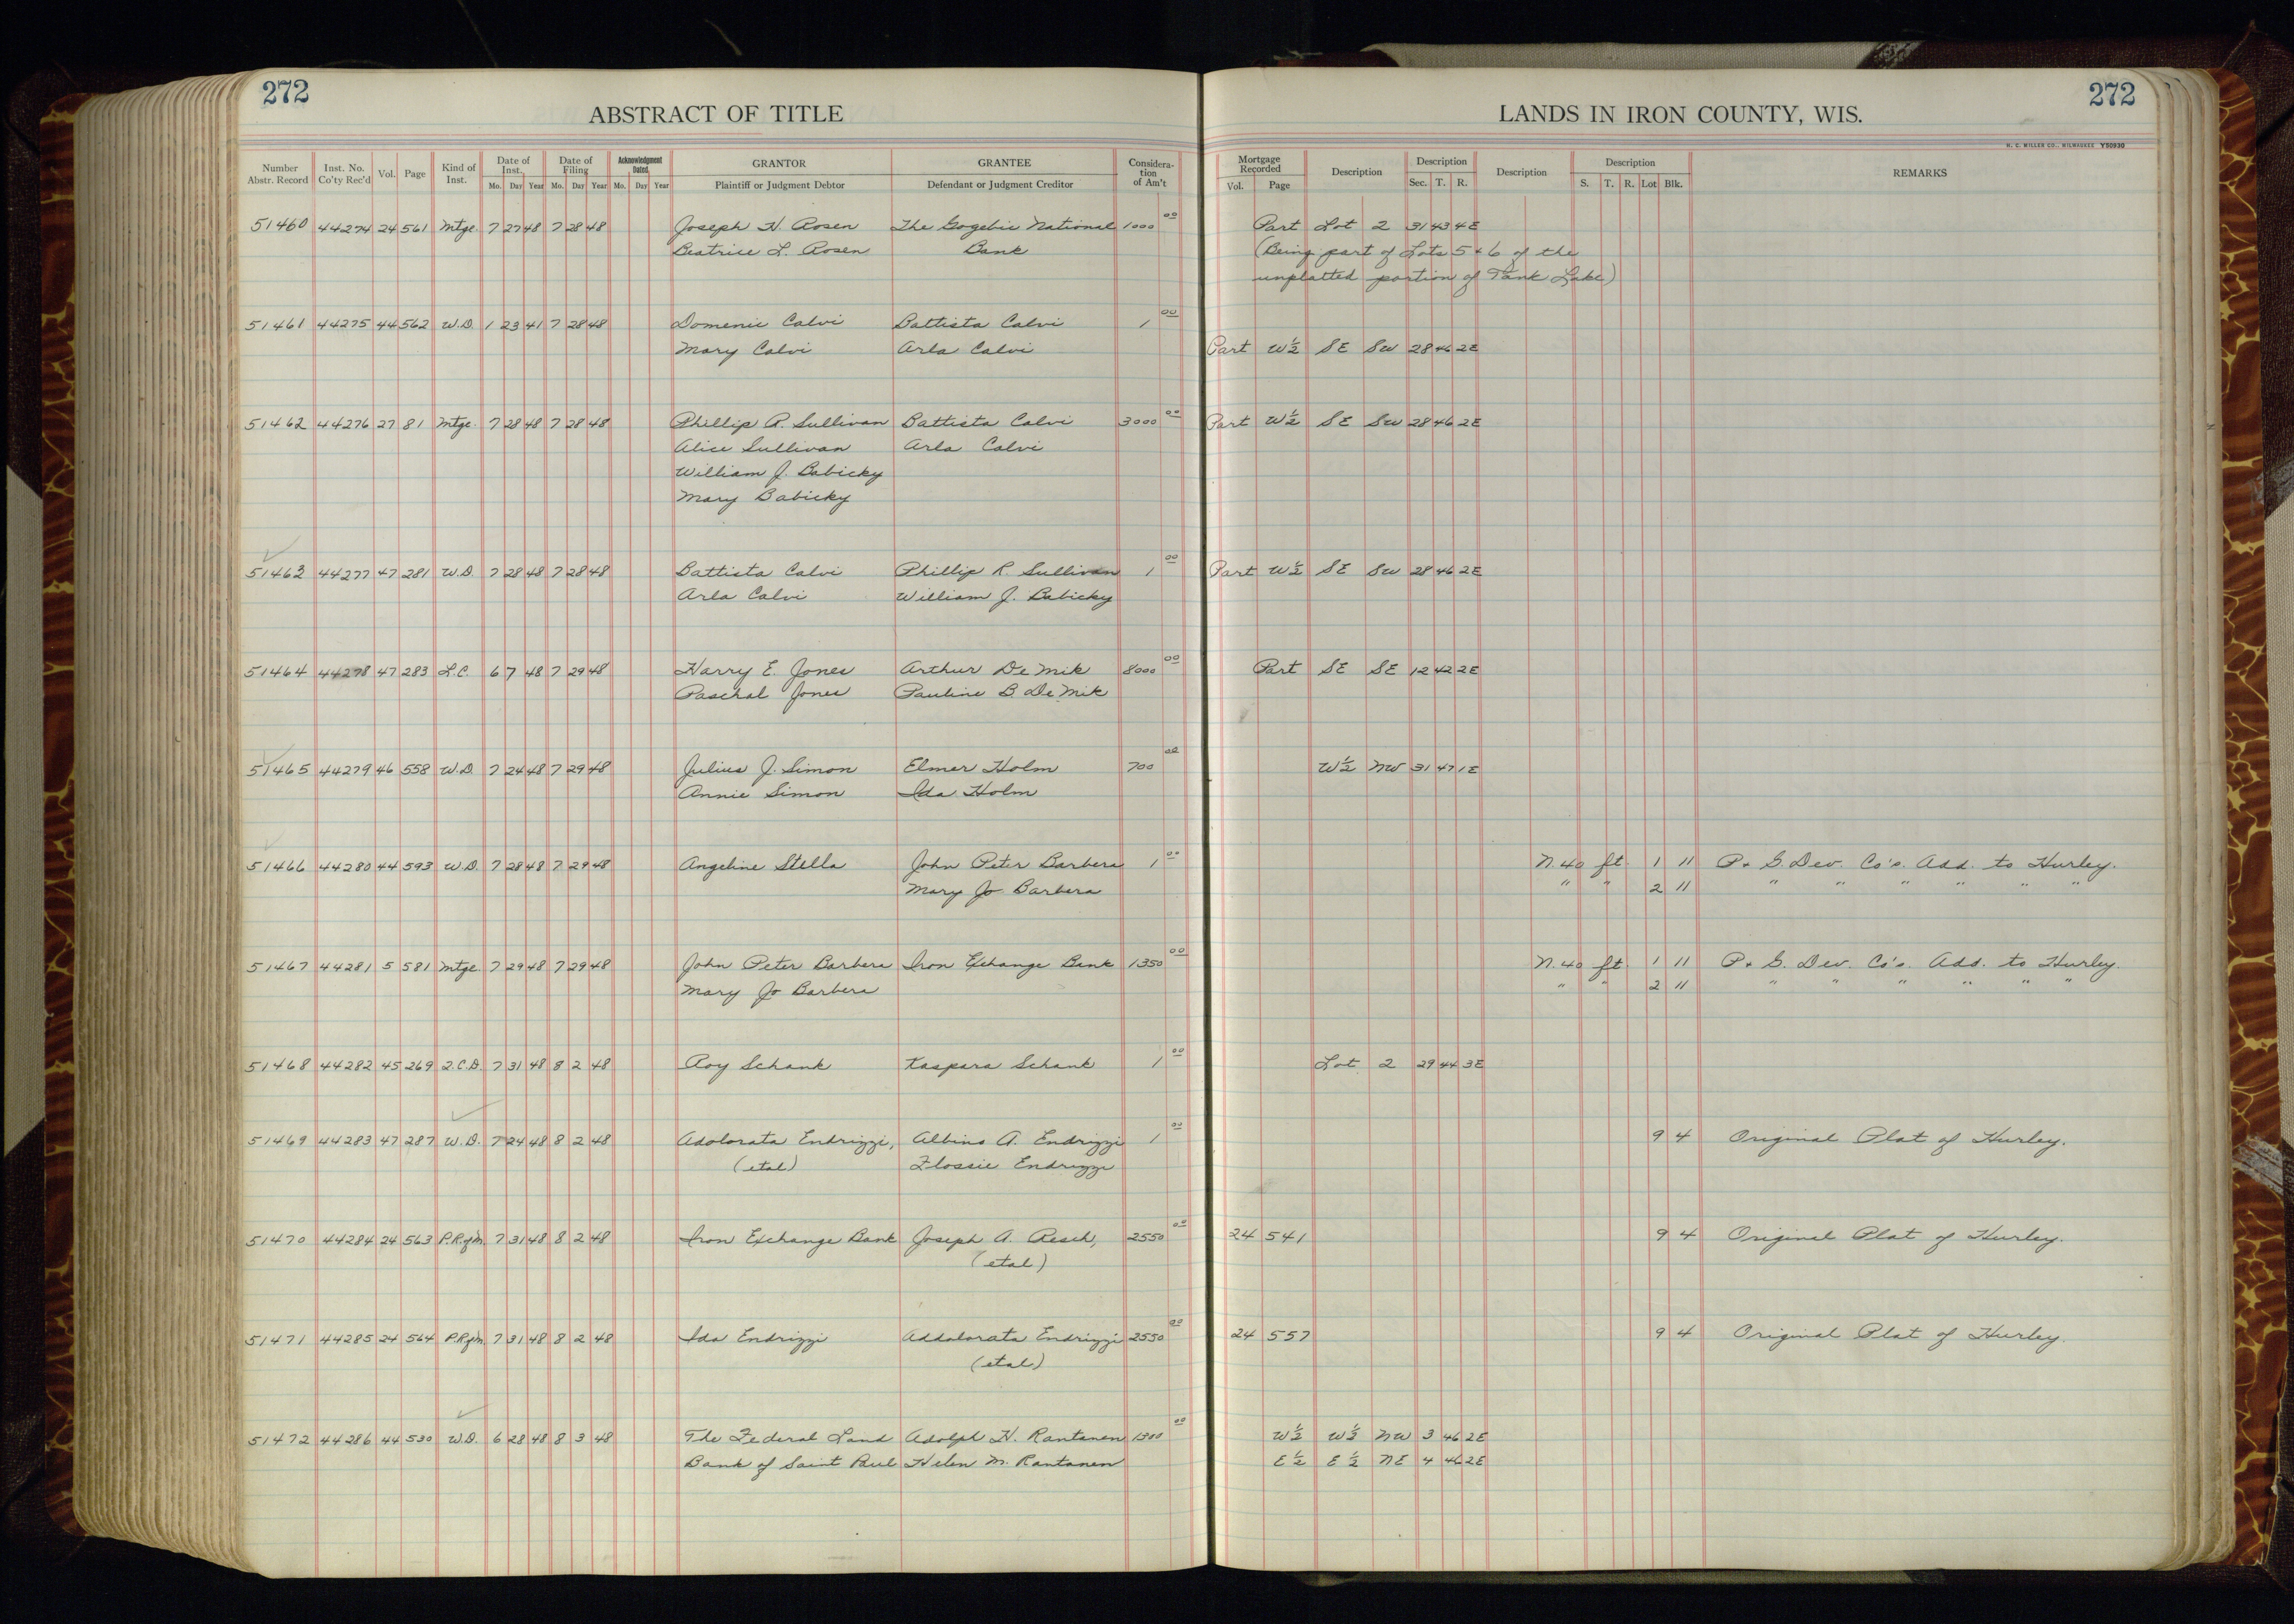 272
272
ABSTRACT OF TITLE
LANDS IN IRON COUNTY, WIS.
H. C. MILLER CO., MILWAUKEE Y50930
Number Abstr. Record Inst. No. Co'ty Rec'd Vol. Page Kind of Inst. Date of Inst. Mo. Day Year Date of Filing Mo. Day Year Acknowledgment Dated Mo. Day Year GRANTOR Plaintiff or Judgment Debtor GRANTEE Defendant or Judgment Creditor Considera-tion of Am't Mortgage Recorded Vol. Page Description Description Sec. T. R. Description Description S. T. R. Lot Blk. REMARKS
51460 44274 24 561 Mtge. 7 27 48 7 28 48 Joseph H. Rosen The Gogebic National 1000 00 Part Lot 2 31 43 4E
Beatrice L. Rosen Bank (Being part of Lots 5 & 6 of the
unplatted portion of Tank Lake)
51461 44275 44 562 W.D. 1 23 41 7 28 48 Domenic Calvi Battista Calvi 1 00
Mary Calvi Arla Calvi Part W½ SE SW 28 46 2E
51462 44276 27 81 Mtge. 7 28 48 7 28 48 Phillip R. Sullivan Battista Calvi 3000 00 Part W½ SE SW 28 46 2E
Alice Sullivan Arla Calvi
William J. Babicky
Mary Babicky
51463 44277 47 281 W.D. 7 28 48 7 28 48 Battista Calvi Phillip R. Sullivan 1 00 Part W½ SE SW 28 46 2E
Arla Calvi William J. Babicky
51464 44278 47 283 L.C. 6 7 48 7 29 48 Harry E. Jones Arthur De Mik 8000 00 Part SE SE 12 42 2E
Paschal Jones Pauline B. De Mik
51465 44279 46 558 W.D. 7 24 48 7 29 48 Julius J. Simon Elmer Holm 700 00 W½ NW 31 47 1E
Annie Simon Ida Holm
51466 44280 44 593 W.D. 7 28 48 7 29 48 Angeline Stella John Peter Barbera 1 00 N. 40 ft. 1 11 P. & G. Dev. Co's. Add. to Hurley.
Mary Jo Barbera " " 2 11 " " " " " "
51467 44281 5 581 Mtge. 7 29 48 7 29 48 John Peter Barbera Iron Exchange Bank 1350 00 N. 40 ft. 1 11 P. & G. Dev. Co's. Add. to Hurley.
Mary Jo Barbera " " 2 11 " " " " " "
51468 44282 45 269 Q.C.D. 7 31 48 8 2 48 Roy Schank Kaspara Schank 1 00 Lot 2 29 44 3E
51469 44283 47 287 W.D. 7 24 48 8 2 48 Adolorata Endrizzi, Albino A. Endrizzi 1 00 9 4 Original Plat of Hurley.
(etal) Flossie Endrizzi
51470 44284 24 563 P.R. of M. 7 31 48 8 2 48 Iron Exchange Bank Joseph A. Resch, 2550 00 24 541 9 4 Original Plat of Hurley.
(etal)
51471 44285 24 564 P.R. of M. 7 31 48 8 2 48 Ida Endrizzi Addolorata Endrizzi 2550 00 24 557 9 4 Original Plat of Hurley.
(etal)
51472 44286 44 530 W.D. 6 28 48 8 3 48 The Federal Land Adolph H. Rantanen 1300 00 W½ W½ NW 3 46 2E
Bank of Saint Paul Helen M. Rantanen E½ E½ NE 4 46 2E